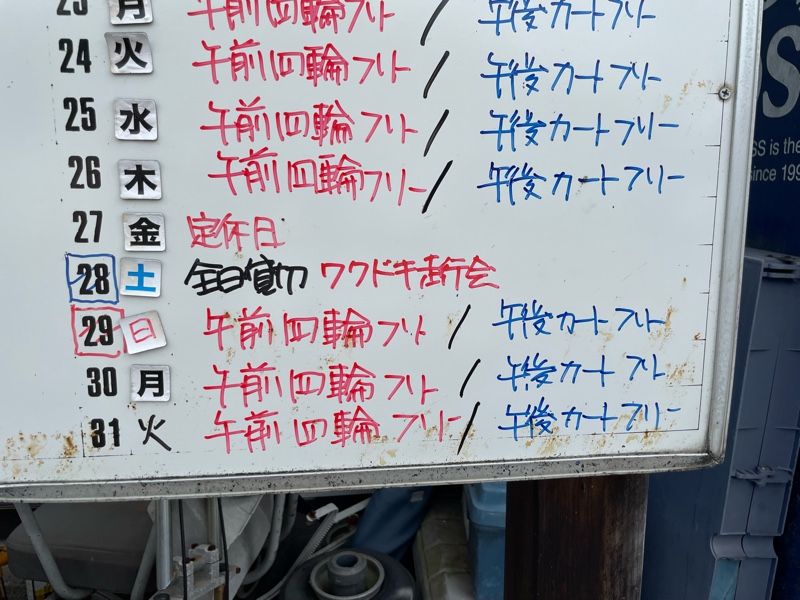 23 月 午前四輪フリー / 午後カートフリー
24 火 午前四輪フリー / 午後カートフリー
25 水 午前四輪フリー / 午後カートフリー
26 木 午前四輪フリー / 午後カートフリー
27 金 定休日
28 土 全日貸切 ワクドキ走行会
29 日 午前四輪フリー / 午後カートフリー
30 月 午前四輪フリー / 午後カートフリー
31 火 午前四輪フリー / 午後カートフリー
S
SS is the
since 199